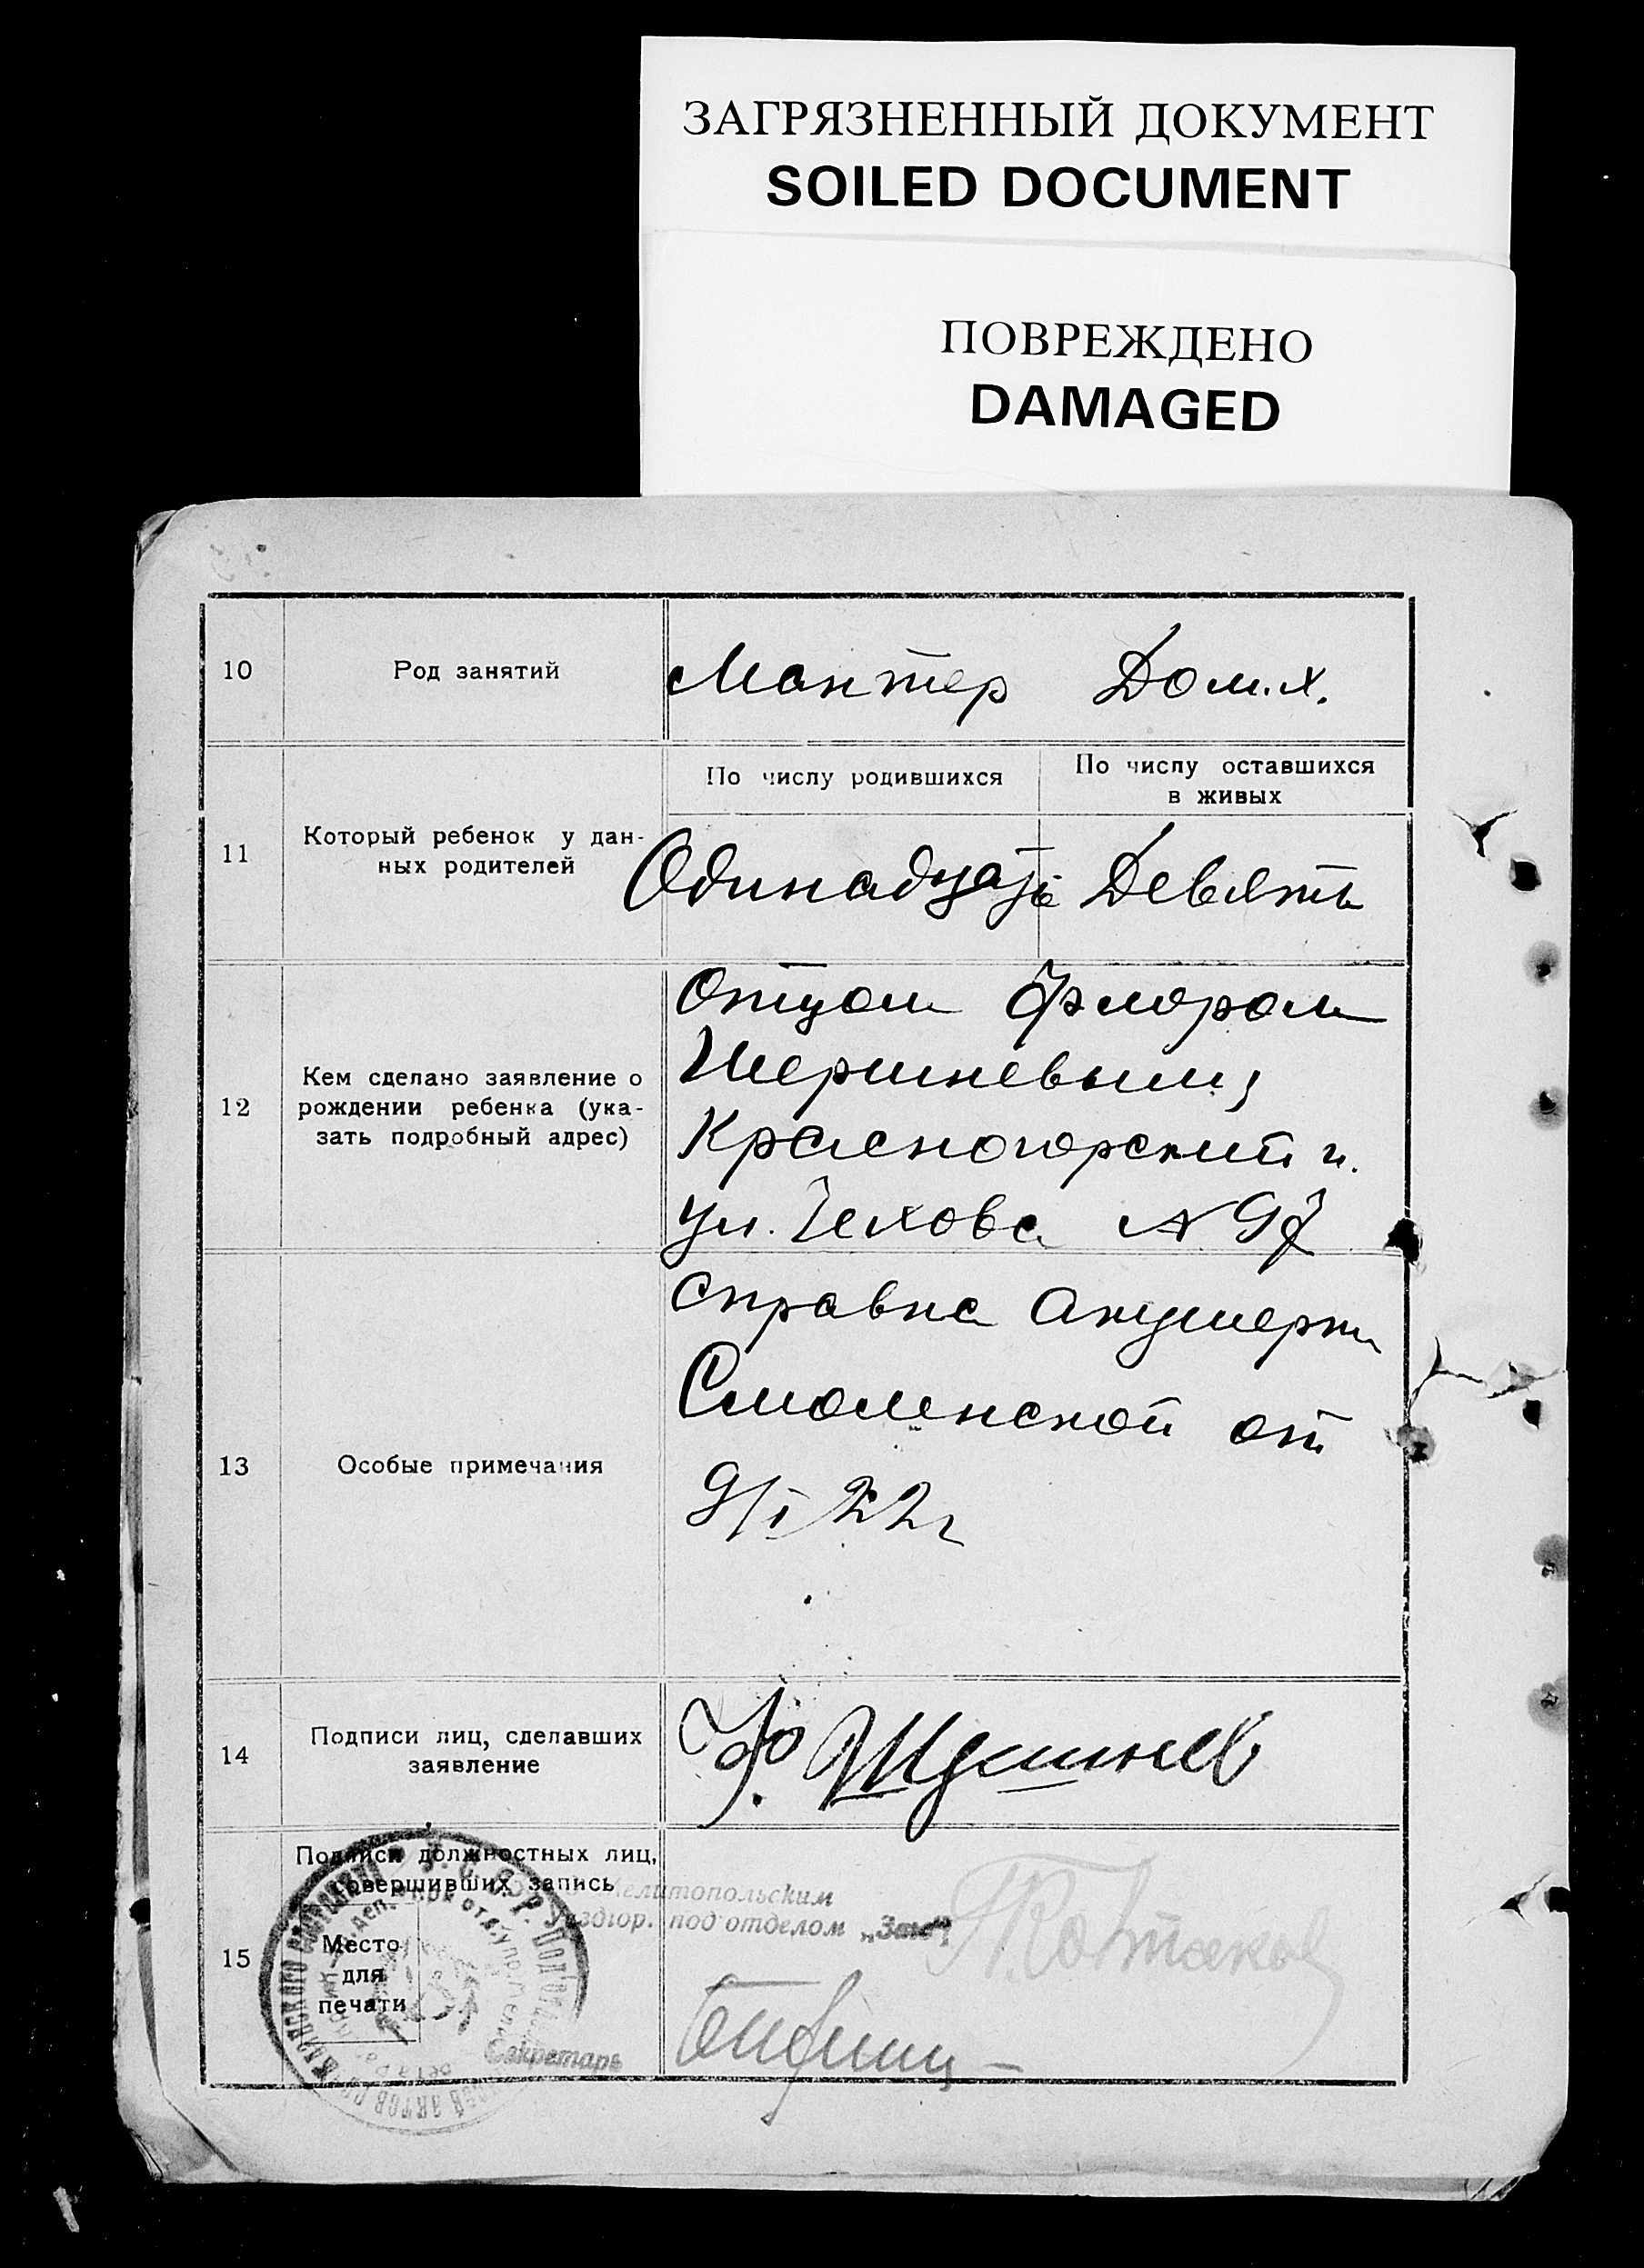 ЗАГРЯЗНЕННЫЙ ДОКУМЕНТ
SOILED DOCUMENT
ПОВРЕЖДЕНО
DAMAGED
10 Род занятий Монтер Дом.х.
По числу родившихся По числу оставшихся
в живых
11 Который ребенок у дан-
ных родителей
Одинадцать Девять
12 Кем сделано заявление о
рождении ребенка (ука-
зать подробный адрес)
Отцом Флором
Шершневым,
Красногорский п.
ул. Чехова № 97
13 Особые примечания
Справка Акушерки
Смоленской от
9/I 22г
14 Подписи лиц, сделавших
заявление
Ф. Шершнев
15 Подписи должностных лиц,
совершивших запись
Мелитопольским
Уездгор. подотделом „Загс"
Место
для
печати
Секретарь